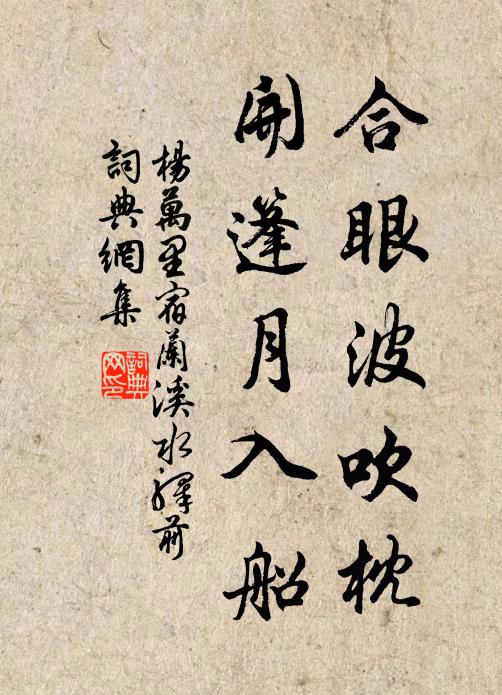 合眼波吹枕
開蓬月入船
楊萬里宿蘭溪水驛前
詞典網集
詞典網印